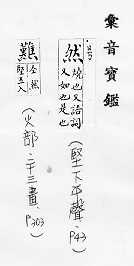 彙音寶鑑
然 燒也又語詞又如也是也
(堅下平聲、P43)
難 仝然 堅五入
(火部、二十三畫、P303)